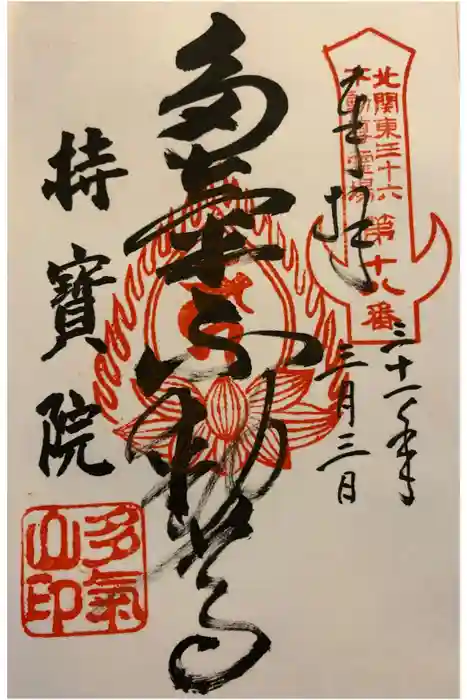 北関東三十六
不動尊霊場
第十八番
奉拝
三十一年
三月三日
多氣不動尊
持寶院
多氣
山印